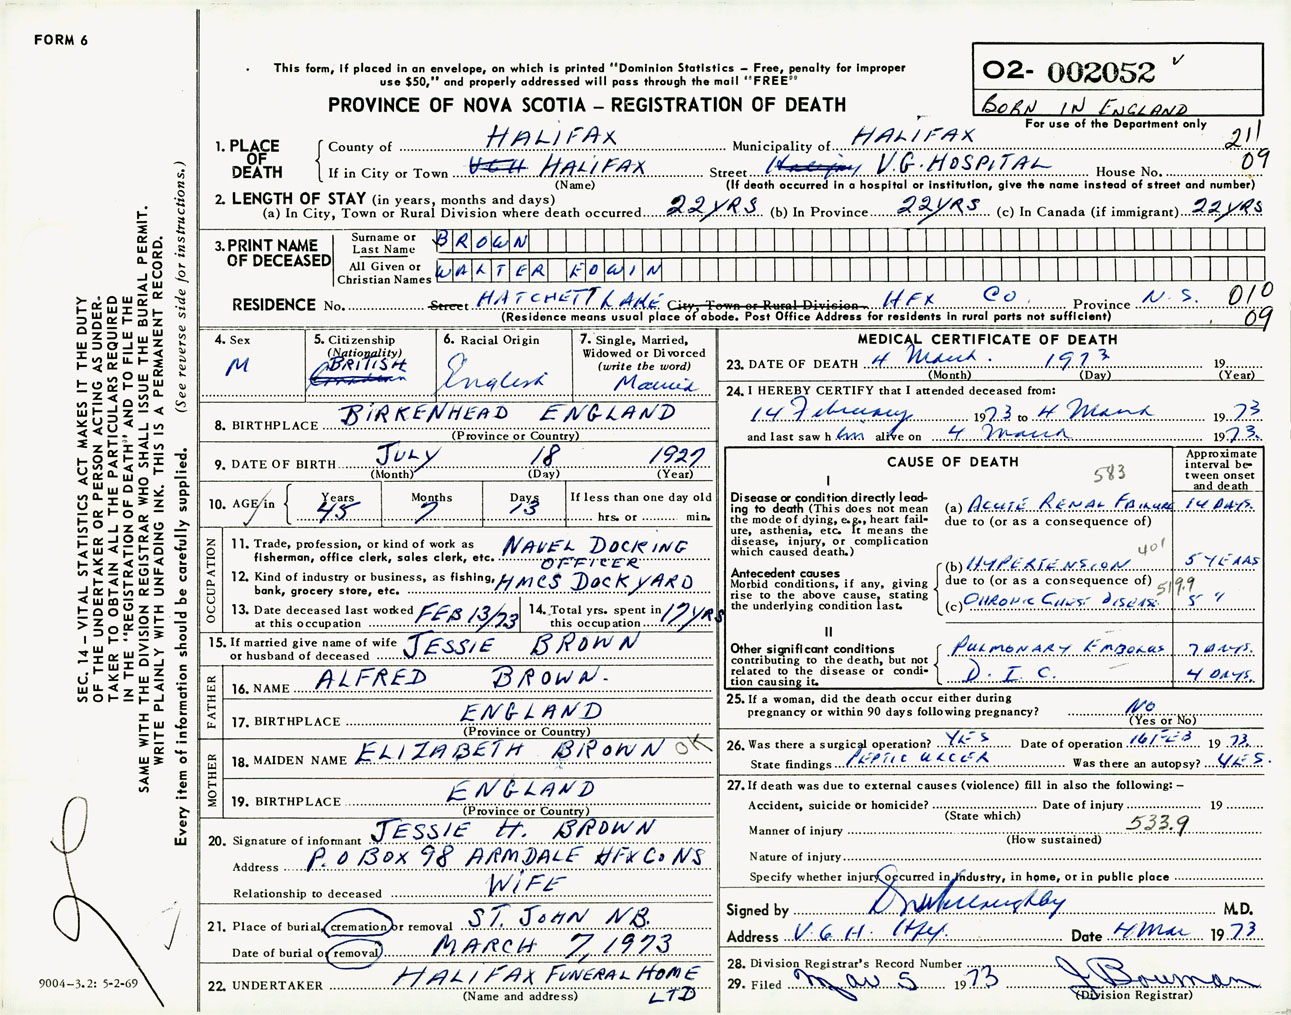 FORM 6
This form, if placed in an envelope, on which is printed "Dominion Statistics – Free, penalty for improper
use $50," and properly addressed will pass through the mail "FREE"
PROVINCE OF NOVA SCOTIA – REGISTRATION OF DEATH
02- 002052
BORN IN ENGLAND
For use of the Department only
211
09
SEC. 14 – VITAL STATISTICS ACT MAKES IT THE DUTY
OF THE UNDERTAKER OR PERSON ACTING AS UNDER-
TAKER TO OBTAIN ALL THE PARTICULARS REQUIRED
IN THE "REGISTRATION OF DEATH" AND TO FILE THE
SAME WITH THE DIVISION REGISTRAR WHO SHALL ISSUE THE BURIAL PERMIT.
WRITE PLAINLY WITH UNFADING INK. THIS IS A PERMANENT RECORD.
Every item of information should be carefully supplied. (See reverse side for instructions.)
1. PLACE OF DEATH
County of HALIFAX Municipality of HALIFAX
If in City or Town VGH HALIFAX Street Halifax V.G. HOSPITAL House No.
(Name) (If death occurred in a hospital or institution, give the name instead of street and number)
2. LENGTH OF STAY (in years, months and days)
(a) In City, Town or Rural Division where death occurred 22 YRS (b) In Province 22 YRS (c) In Canada (if immigrant) 22 YRS
3. PRINT NAME OF DECEASED
Surname or Last Name BROWN
All Given or Christian Names WALTER EDWIN
RESIDENCE No. Street HATCHETT LAKE City, Town or Rural Division HFX CO. Province N.S. 010
(Residence means usual place of abode. Post Office Address for residents in rural parts not sufficient) 09
4. Sex M
5. Citizenship (Nationality) BRITISH Canadian
6. Racial Origin English
7. Single, Married, Widowed or Divorced (write the word) Married
8. BIRTHPLACE BIRKENHEAD ENGLAND
(Province or Country)
9. DATE OF BIRTH JULY 18 1927
(Month) (Day) (Year)
10. AGE in Years 45 Months 7 Days 13 If less than one day old
hrs. or min.
OCCUPATION
11. Trade, profession, or kind of work as
fisherman, office clerk, sales clerk, etc. NAVEL DOCKING
OFFICER
12. Kind of industry or business, as fishing,
bank, grocery store, etc. HMCS DOCKYARD
13. Date deceased last worked
at this occupation FEB 13/73
14. Total yrs. spent in
this occupation 17 YRS
15. If married give name of wife
or husband of deceased JESSIE BROWN
FATHER
16. NAME ALFRED BROWN.
17. BIRTHPLACE ENGLAND
(Province or Country)
MOTHER
18. MAIDEN NAME ELIZABETH BROWN OK
19. BIRTHPLACE ENGLAND
(Province or Country)
20. Signature of informant JESSIE H. BROWN
Address P.O BOX 98 ARMDALE HFX CO NS
Relationship to deceased WIFE
21. Place of burial, cremation or removal ST. JOHN N.B.
Date of burial or removal MARCH 7, 1973
22. UNDERTAKER HALIFAX FUNERAL HOME
(Name and address) LTD
9004–3.2: 5-2-69
MEDICAL CERTIFICATE OF DEATH
23. DATE OF DEATH 4 March. 1973 19
(Month) (Day) (Year)
24. I HEREBY CERTIFY that I attended deceased from:
14 February 1973 to 4 March 1973
and last saw him alive on 4 March 1973.
CAUSE OF DEATH
583
Approximate interval between onset and death
I
Disease or condition directly lead-
ing to death (This does not mean
the mode of dying, e.g., heart fail-
ure, asthenia, etc. It means the
disease, injury, or complication
which caused death.)
(a) ACUTE RENAL FAILURE 14 DAYS.
due to (or as a consequence of)
401
Antecedent causes
Morbid conditions, if any, giving
rise to the above cause, stating
the underlying condition last.
(b) HYPERTENSION 5 YEARS
due to (or as a consequence of) 519.9
(c) CHRONIC CHEST DISEASE. 5 "
II
Other significant conditions
contributing to the death, but not
related to the disease or condi-
tion causing it.
PULMONARY EMBOLUS 7 DAYS.
D. I. C. 4 DAYS.
25. If a woman, did the death occur either during
pregnancy or within 90 days following pregnancy? NO
(Yes or No)
26. Was there a surgical operation? YES Date of operation 16 FEB 1973
State findings PEPTIC ULCER Was there an autopsy? YES.
27. If death was due to external causes (violence) fill in also the following: –
Accident, suicide or homicide? Date of injury 19
(State which)
Manner of injury 533.9
(How sustained)
Nature of injury
Specify whether injury occurred in industry, in home, or in public place
Signed by M.D.
Address V.G.H. Hfx. Date 4 Mar 1973
28. Division Registrar's Record Number
29. Filed Mar 5 1973 J Bowman
(Division Registrar)